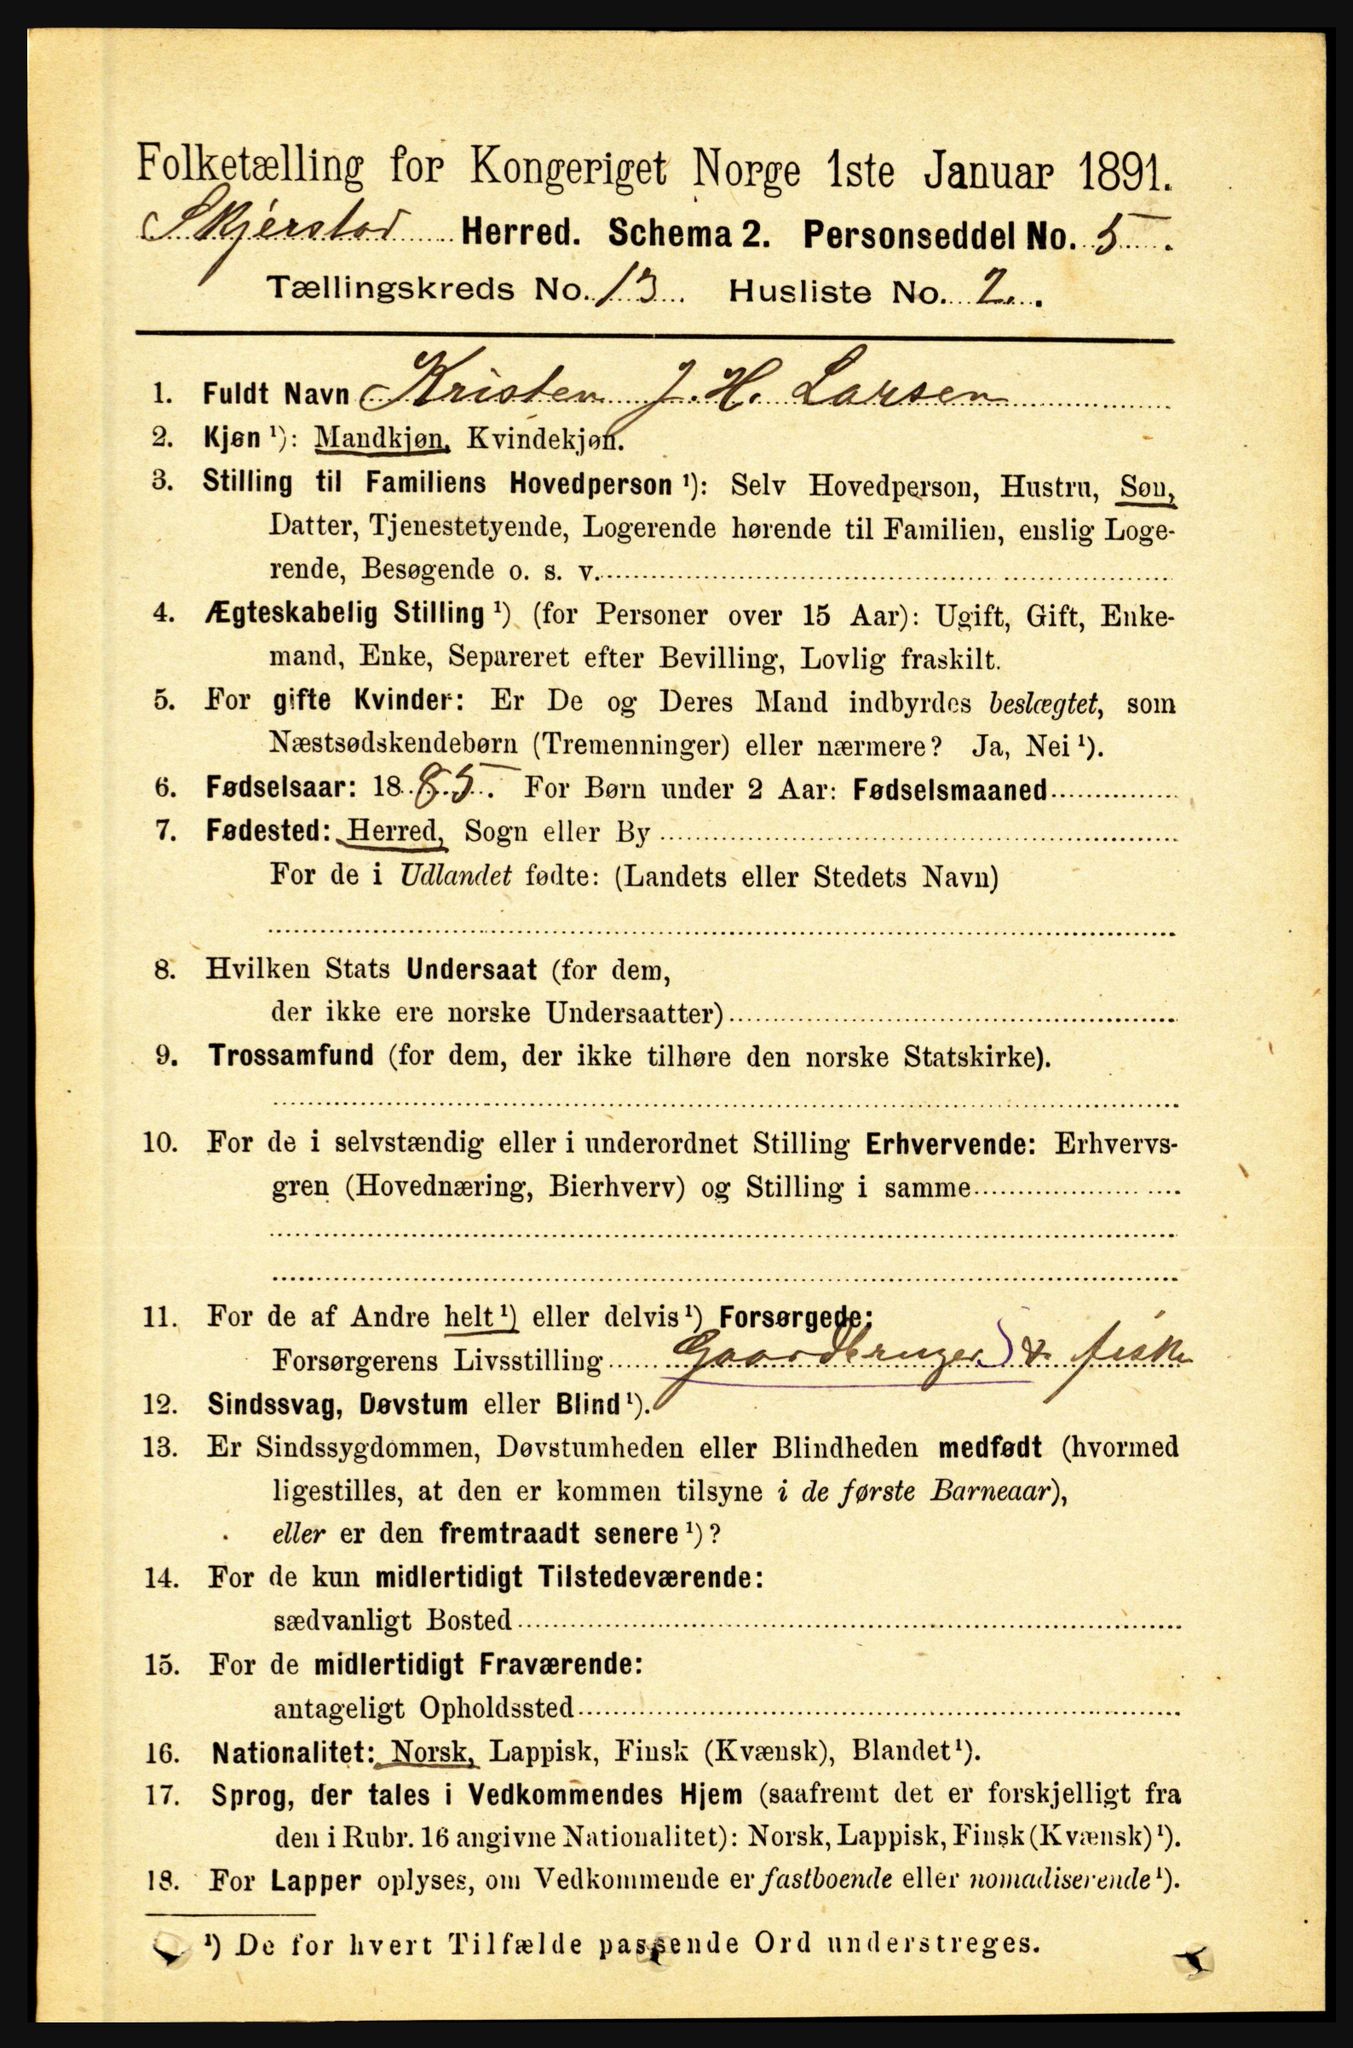 Folketælling for Kongeriget Norge 1ste Januar 1891.
Skjerstad Herred. Schema 2. Personseddel No. 5.
Tællingskreds No. 13. Husliste No. 2.
1. Fuldt Navn Kristen J. H. Larsen
2. Kjøn ¹): Mandkjøn, Kvindekjøn.
3. Stilling til Familiens Hovedperson ¹): Selv Hovedperson, Hustru, Søn,
Datter, Tjenestetyende, Logerende hørende til Familien, enslig Loge-
rende, Besøgende o. s. v.
4. Ægteskabelig Stilling ¹) (for Personer over 15 Aar): Ugift, Gift, Enke-
mand, Enke, Separeret efter Bevilling, Lovlig fraskilt.
5. For gifte Kvinder: Er De og Deres Mand indbyrdes beslægtet, som
Næstsødskendebørn (Tremenninger) eller nærmere? Ja, Nei ¹).
6. Fødselsaar: 1885. For Børn under 2 Aar: Fødselsmaaned
7. Fødested: Herred, Sogn eller By
For de i Udlandet fødte: (Landets eller Stedets Navn)
8. Hvilken Stats Undersaat (for dem,
der ikke ere norske Undersaatter)
9. Trossamfund (for dem, der ikke tilhøre den norske Statskirke).
10. For de i selvstændig eller i underordnet Stilling Erhvervende: Erhvervs-
gren (Hovednæring, Bierhverv) og Stilling i samme
11. For de af Andre helt ¹) eller delvis ¹) Forsørgede:
Forsørgerens Livsstilling Gaardbruger & fisker
12. Sindssvag, Døvstum eller Blind ¹).
13. Er Sindssygdommen, Døvstumheden eller Blindheden medfødt (hvormed
ligestilles, at den er kommen tilsyne i de første Barneaar),
eller er den fremtraadt senere ¹)?
14. For de kun midlertidigt Tilstedeværende:
sædvanligt Bosted
15. For de midlertidigt Fraværende:
antageligt Opholdssted
16. Nationalitet: Norsk, Lappisk, Finsk (Kvænsk), Blandet ¹).
17. Sprog, der tales i Vedkommendes Hjem (saafremt det er forskjelligt fra
den i Rubr. 16 angivne Nationalitet): Norsk, Lappisk, Finsk (Kvænsk) ¹).
18. For Lapper oplyses, om Vedkommende er fastboende eller nomadiserende ¹).
¹) De for hvert Tilfælde passende Ord understreges.